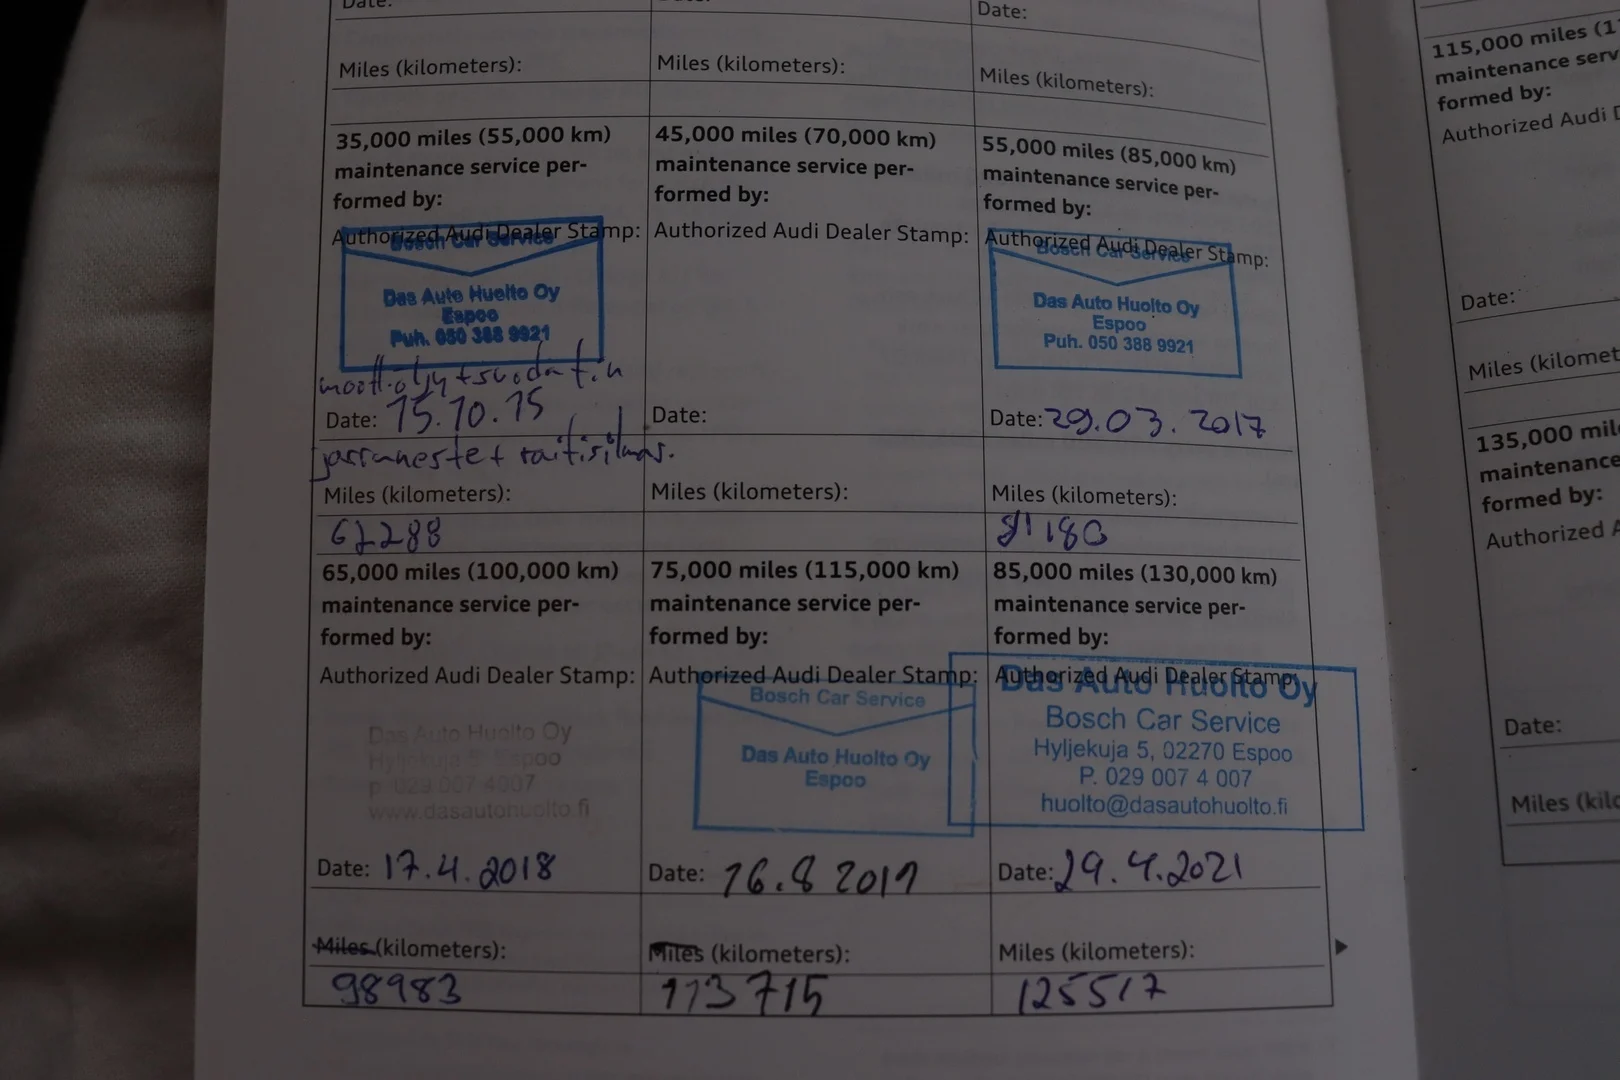 Date:
Date:
Miles (kilometers):
Miles (kilometers):
Miles (kilometers):
35,000 miles (55,000 km)
maintenance service per-
formed by:
Authorized Audi Dealer Stamp:
Bosch Car Service
Das Auto Huolto Oy
Espoo
Puh. 050 388 9921
Date: 15.10.15
Miles (kilometers):
45,000 miles (70,000 km)
maintenance service per-
formed by:
Authorized Audi Dealer Stamp:
Date:
Miles (kilometers):
55,000 miles (85,000 km)
maintenance service per-
formed by:
Authorized Audi Dealer Stamp:
Bosch Car Service
Das Auto Huolto Oy
Espoo
Puh. 050 388 9921
Date: 29.03.2017
Miles (kilometers):
65,000 miles (100,000 km)
maintenance service per-
formed by:
Authorized Audi Dealer Stamp:
Das Auto Huolto Oy
Hyljekuja 5 Espoo
p. 029 007 4007
www.dasautohuolto.fi
Date: 17.4.2018
Miles (kilometers):
98983
75,000 miles (115,000 km)
maintenance service per-
formed by:
Authorized Audi Dealer Stamp:
Bosch Car Service
Das Auto Huolto Oy
Espoo
Date: 16.8 2019
Miles (kilometers):
113715
85,000 miles (130,000 km)
maintenance service per-
formed by:
Authorized Audi Dealer Stamp:
Das Auto Huolto Oy
Bosch Car Service
Hyljekuja 5, 02270 Espoo
P. 029 007 4 007
huolto@dasautohuolto.fi
Date: 29.4.2021
Miles (kilometers):
125517
115,000 miles
maintenance
formed by:
Authorized Audi
Date:
Miles
135,000
maintenance
formed by:
Authorized
Date:
Miles